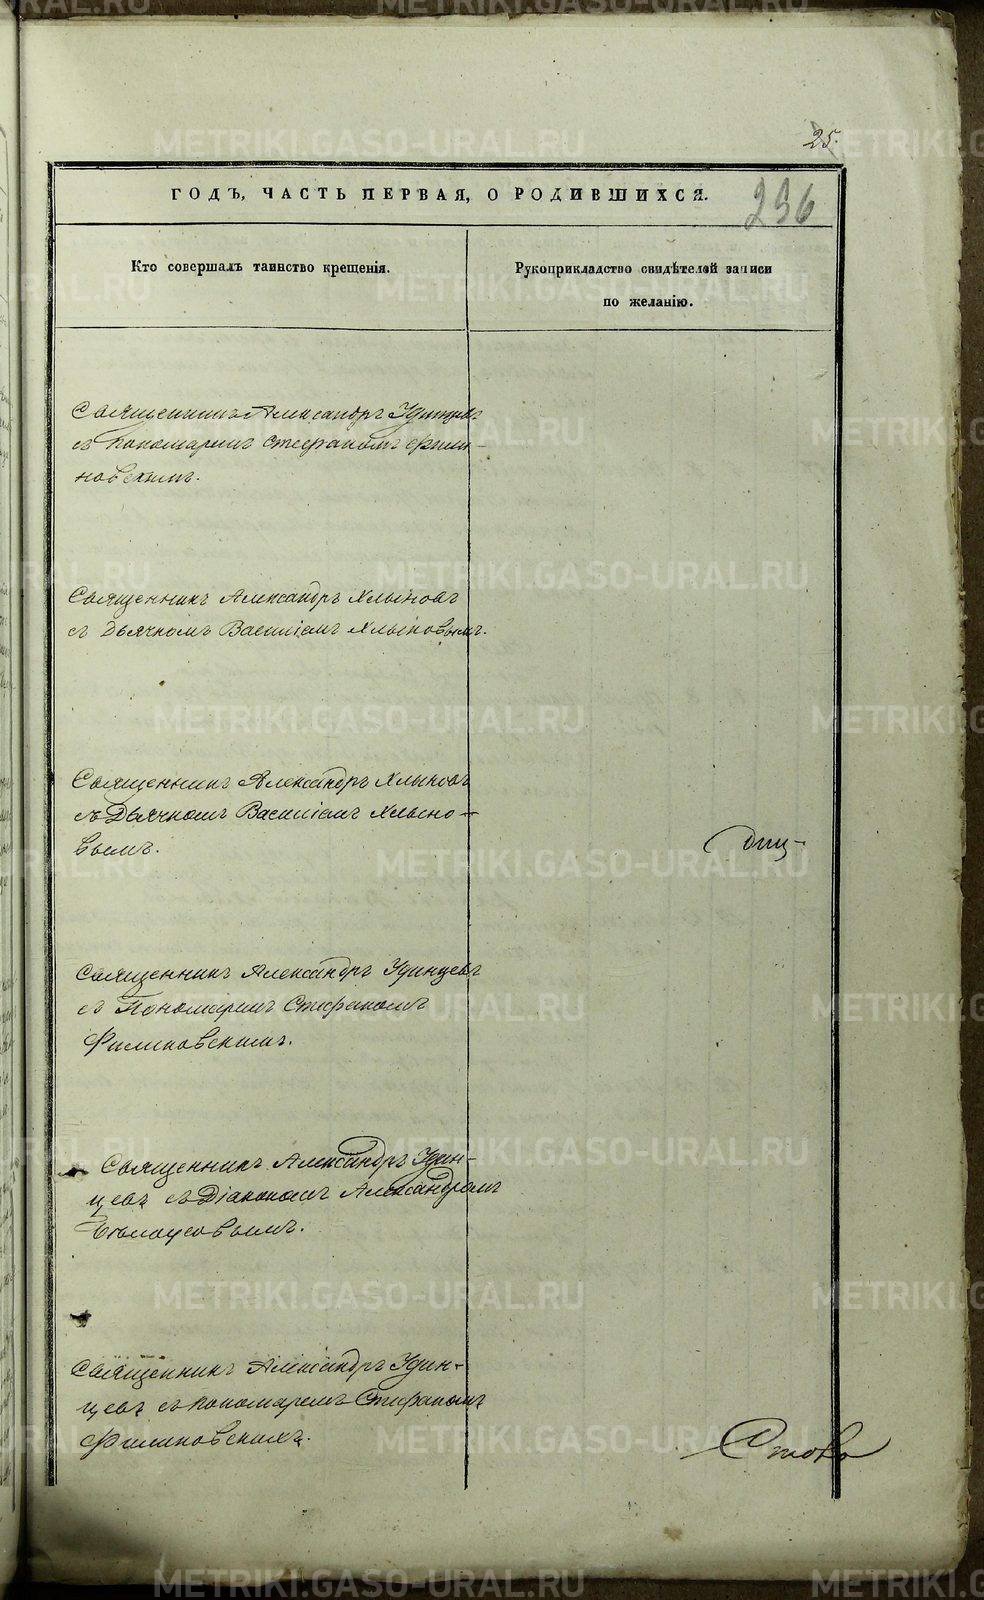 25.
ГОДЪ, ЧАСТЬ ПЕРВАЯ, О РОДИВШИХСЯ.
236
Кто совершалъ таинство крещенія.
Рукоприкладство свидѣтелей записи
по желанію.
Священникъ Александръ Удинцевъ
съ пономаремъ Стефаномъ Филип-
новскимъ.
Священникъ Александръ Хлыновъ
съ Дьячкомъ Василіемъ Хлыновымъ.
Священникъ Александръ Хлыновъ
съ Дьячкомъ Василіемъ Хлыно-
вымъ.
Священникъ Александръ Удинцевъ
съ Пономаремъ Стефаномъ
Филиновскимъ.
Священникъ Александръ Удин-
цевъ съ Діакономъ Александромъ
Бѣлоусовымъ.
Священникъ Александръ Удин-
цевъ съ пономаремъ Стефаномъ
Филиновскимъ.
METRIKI.GASO-URAL.RU